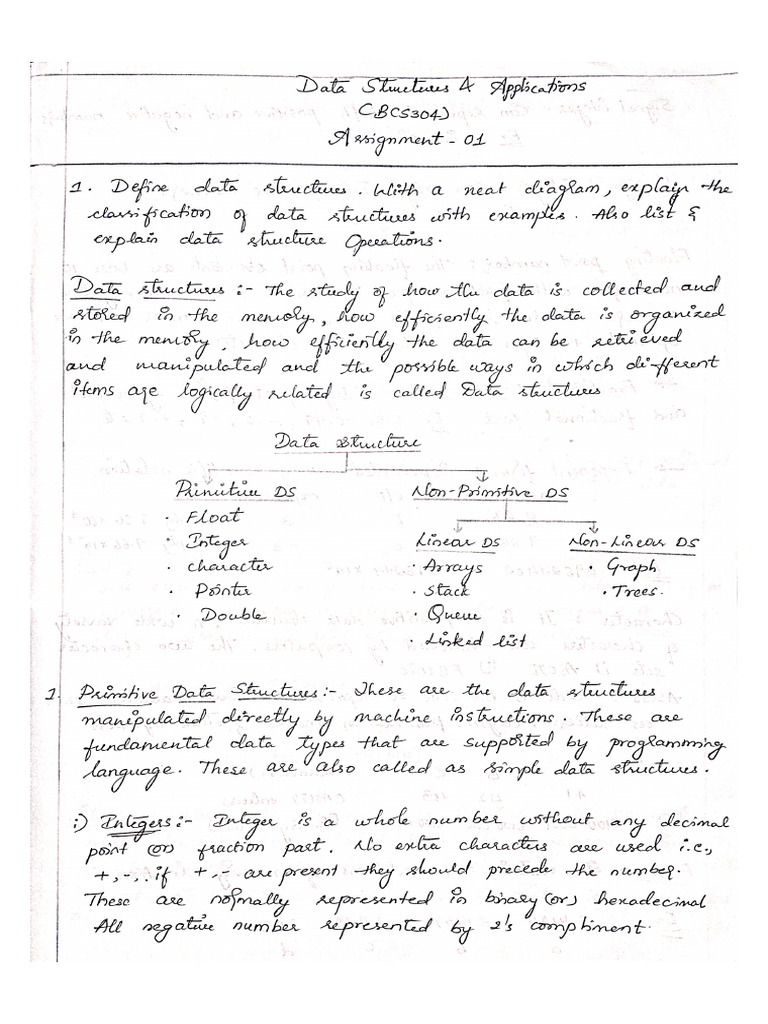 Data Structures & Applications
(BCS304)
Assignment - 01
1. Define data structures. With a neat diagram, explain the
classification of data structures with examples. Also list &
explain data structure Operations.
Data structures :- The study of how the data is collected and
stored in the memory, how efficiently the data is organized
in the memory, how efficiently the data can be retrieved
and manipulated and the possible ways in which di-fferent
items are logically related is called Data structures
Data Structure
Primitive DS Non-Primitive DS
· Float
· Integer Linear DS Non-Linear DS
· character · Arrays · Graph
· Pointer · Stack · Trees.
· Double · Queue
· Linked list
1. Primitive Data Structures:- These are the data structures
manipulated directly by machine instructions. These are
fundamental data types that are supported by programming
language. These are also called as simple data structures.
i) Integers:- Integer is a whole number without any decimal
point (or) fraction part. No extra characters are used i.e.,
+, -, if +, - are present they should precede the number.
These are normally represented in binary (or) hexadecimal
All negative number represented by 2's compliment.